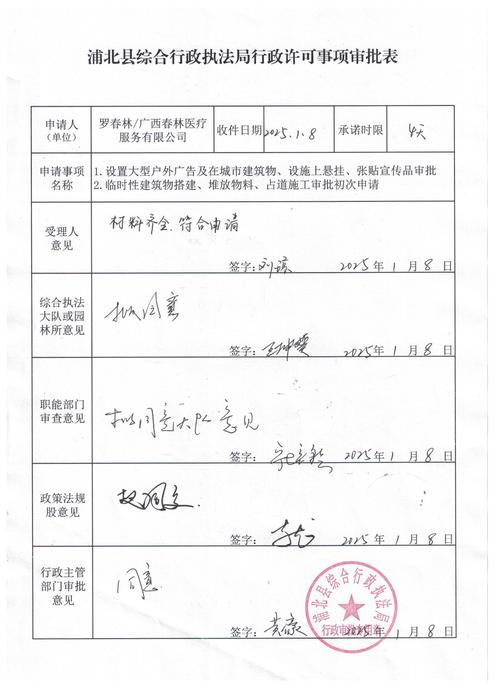 浦北县综合行政执法局行政许可事项审批表
申请人
（单位）
罗春林/广西春林医疗
服务有限公司
收件日期
2025.1.8
承诺时限
4天
申请事项
名称
1.设置大型户外广告及在城市建筑物、设施上悬挂、张贴宣传品审批
2.临时性建筑物搭建、堆放物料、占道施工审批初次申请
受理人
意见
材料齐全.符合申请
签字：
2025年1月8日
综合执法
大队或园
林所意见
拟同意
签字：
2025年1月8日
职能部门
审查意见
拟同意大队意见
签字：
2025年1月8日
政策法规
股意见
拟同意.
签字：
2025年1月8日
行政主管
部门审批
意见
同意
签字：
2025年1月8日
浦北县综合行政执法局
行政审批专用章